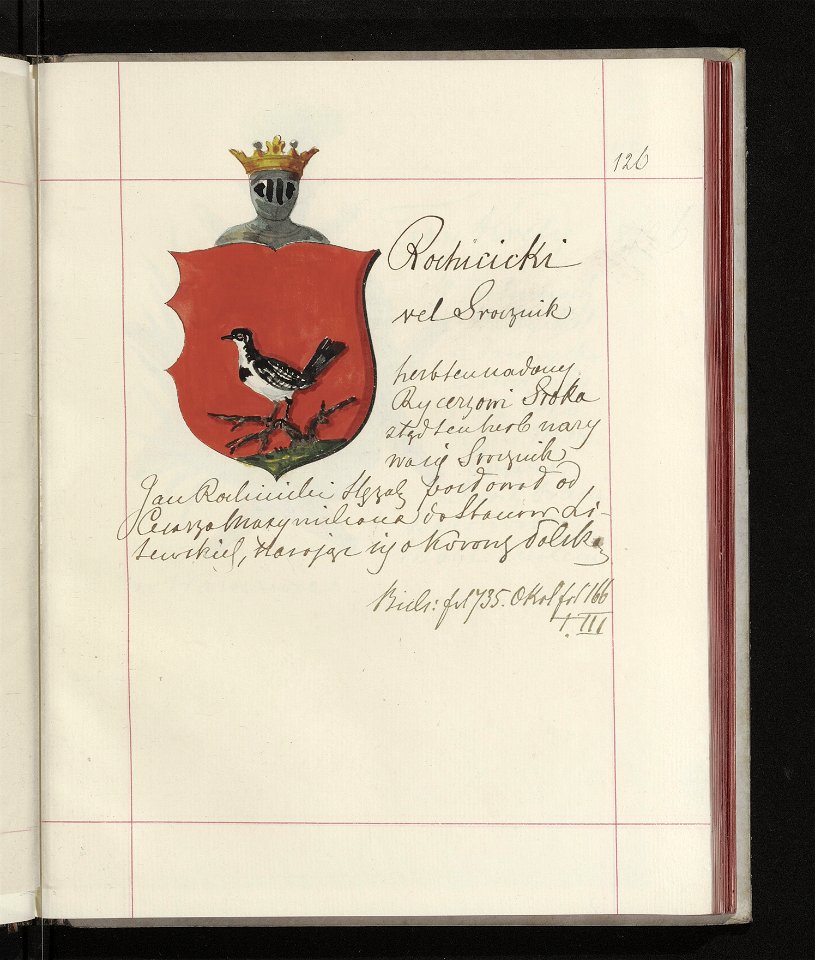 126
Rochcicki
vel Srocznik
herb ten nadany
Rycerzowi Sroka
ztąd ten herb nazy
wa się Srocznik
Jan Rochcicki Xżążę posłował od
Cesarza Maxymiliana do Stanow Li-
tewskich, starając się o Koronę Polską
Biels: fol 735. Okol fol 166
t. III